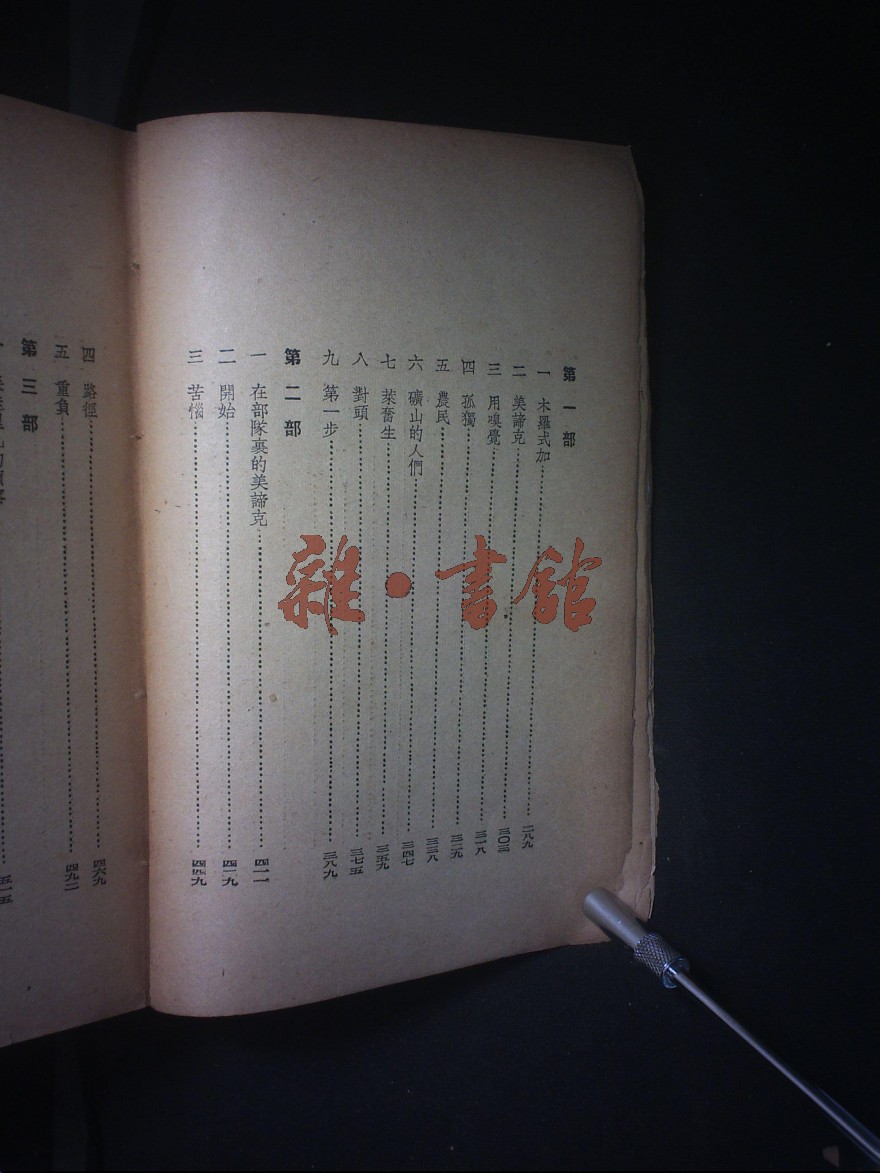 第一部
一 木羅式加 二八九
二 美諦克 三〇三
三 用嗅覺 三一八
四 孤獨 三二九
五 農民 三三八
六 礦山的人們 三四七
七 萊奮生 三五九
八 對頭 三七五
九 第一步 三八九
第二部
一 在部隊裏的美諦克 四一一
二 開始 四二九
三 苦惱 四四九
四 路徑 四六九
五 重負 四九二
第三部
五一五
雜·書館